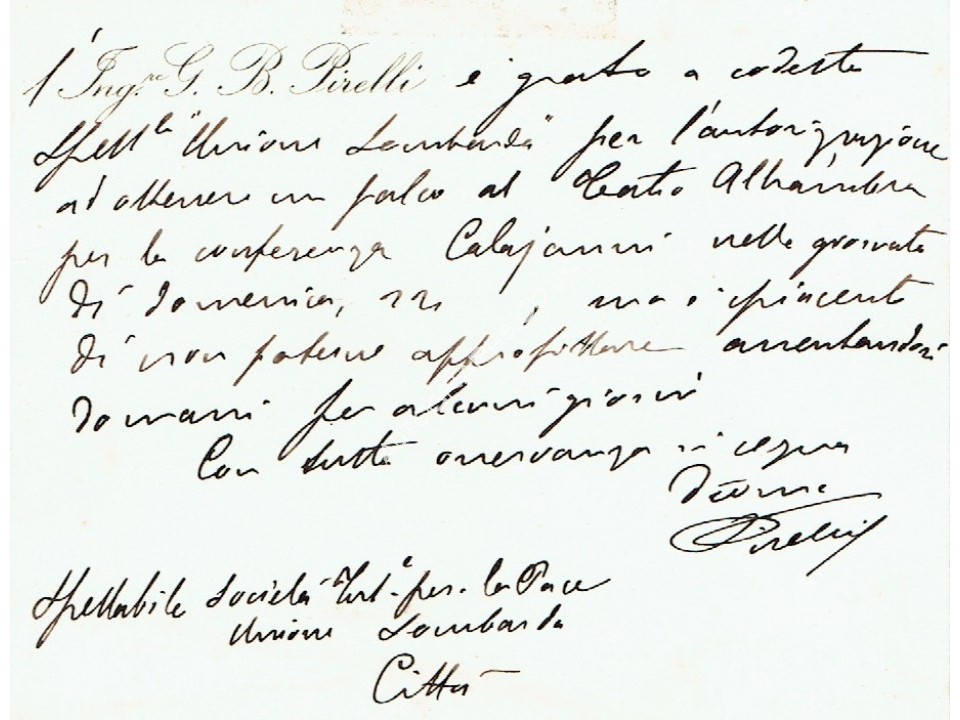 l'Ing.re G. B. Pirelli è grato a codesta
Spett.le "Unione Lombarda" per l'autorizzazione
ad ottenere un palco al Teatro Alhambra
per la conferenza Colajanni nella giornata
di domenica, 22 , ma è spiacente
di non poterne approfittare assentandosi
domani per alcuni giorni
Con tutta osservanza si segna
Devmo
Pirelli
Spettabile Società Int.le per la Pace
Unione Lombarda
Città